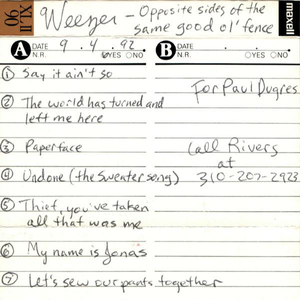 XLII 90
Weezer - Opposite sides of the
same good ol' fence
maxell
A DATE 9 . 4 . 92 N.R. YES NO
B DATE . . N.R. YES NO
① Say it ain't so
② The world has turned and
left me here
③ Paperface
④ Undone (the sweater song)
⑤ Thief, you've taken
all that was me
⑥ My name is Jonas
⑦ Let's sew our pants together
For Paul Dugres
Call Rivers
at
310-207-2923